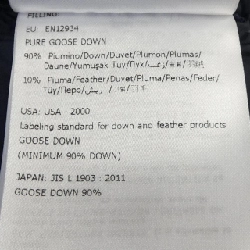 FILLING:
EU: EN12934
PURE GOOSE DOWN
90% Piumino/Down/Duvet/Plumon/Plumas/
Daune/Yumuşak Tüy/Пух/
10% Piuma/Feather/Duvet/Pluma/Penas/Feder/
Tüy/Перо/
USA: USA - 2000
Labeling standard for down and feather products
GOOSE DOWN
(MINIMUM 90% DOWN)
JAPAN: JIS L 1903 : 2011
GOOSE DOWN 90%